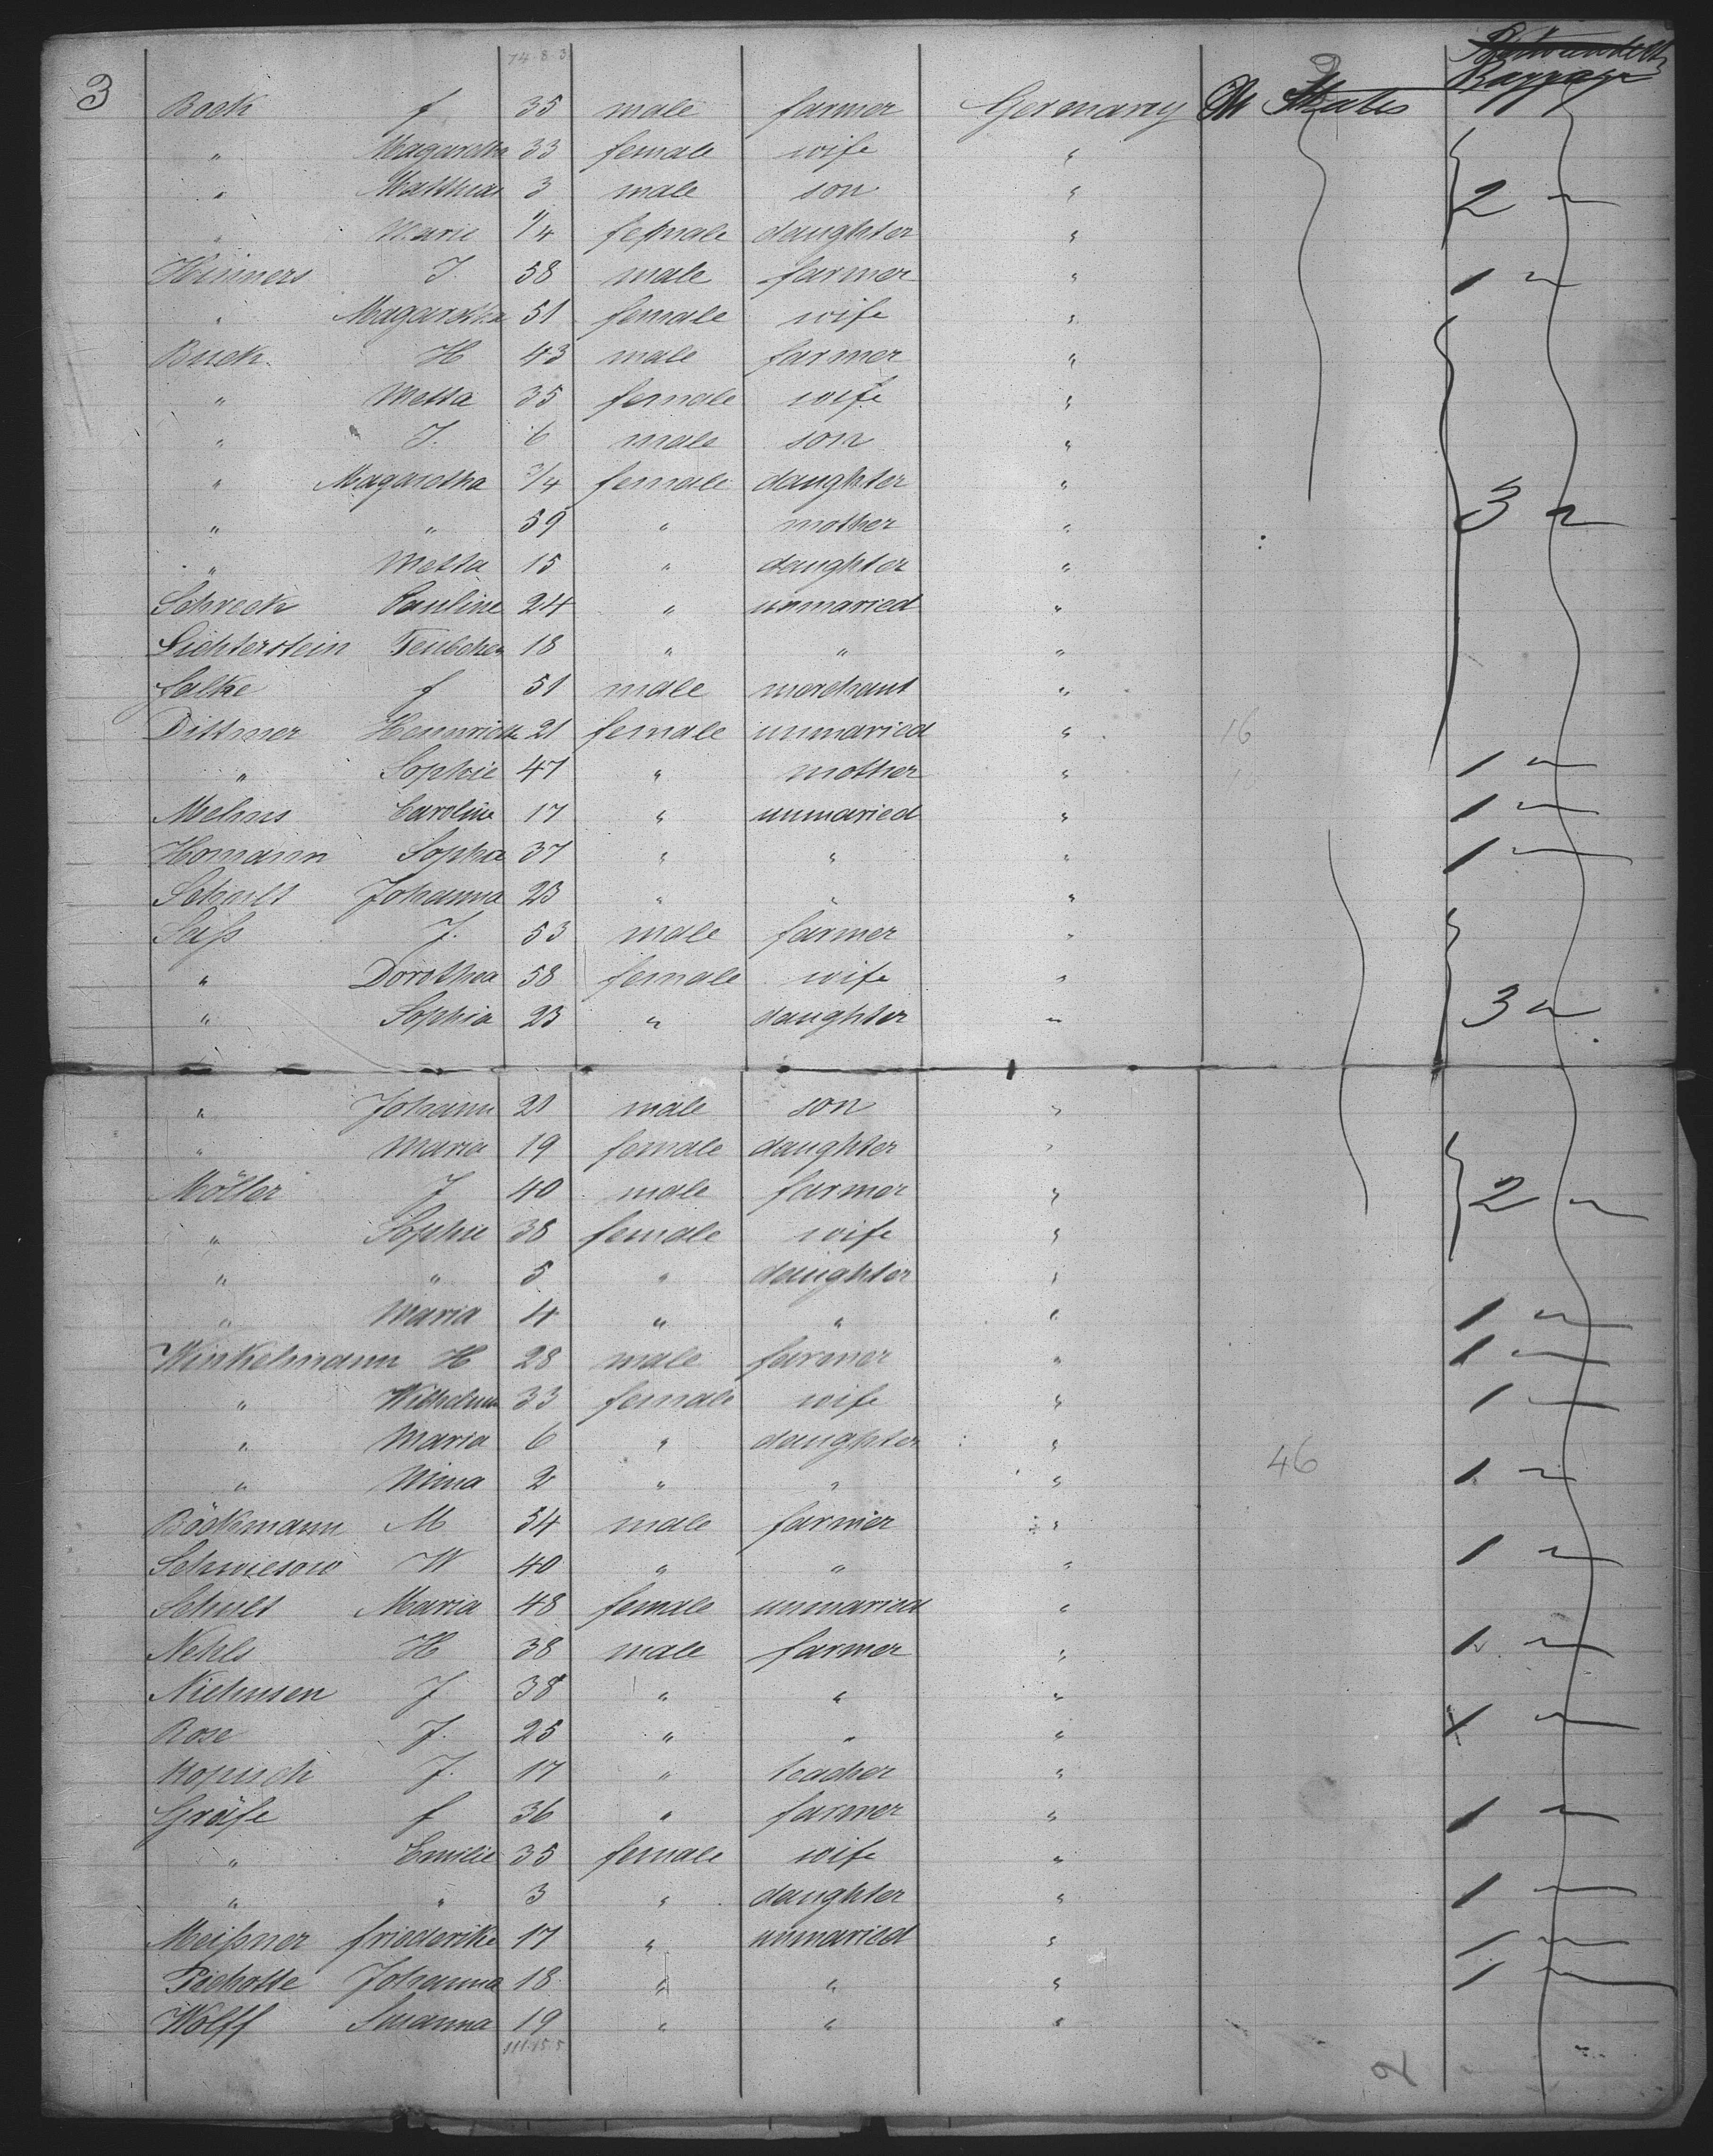 3 74-8-3 Baggage
Bock f 35 male farmer Germany States
" Magaretha 33 female wife "
" Matthias 3 male son " 2 "
" Marie 1/4 female daughter "
Hinners J. 58 male farmer " 1 "
" Magaretha 51 female wife "
Buck H 43 male farmer "
" Metta 35 female wife "
" J. 6 male son "
" Magaretha 3/4 female daughter "
" " 59 " mother " 3 "
" Metta 15 " daughter "
Schreck Pauline 24 " unmaried "
Lichterstein Teubchen 18 " " "
Falke f 51 male merchant "
Dittmer Hennriette 21 female unmaried " 16
" Sophie 47 " mother " 1 "
Mehns Caroline 17 " unmaried " 1 "
Homann Sophia 37 " " " 1 "
Schult Johanna 23 " " "
Saß J. 53 male farmer "
" Dorothea 58 female wife "
" Sophia 23 " daughter " 3 "
" Johann 21 male son "
" Maria 19 female daughter "
Möller J 40 male farmer " 2 "
" Sophie 38 female wife "
" " 5 " daughter "
" Maria 4 " " " 1 "
Winkelmann H 28 male farmer " 1 "
" Wilhelmine 33 female wife " 1 "
" Maria 6 " daughter " 46
" Mina 2 " " " 1 "
Böckmann M 34 male farmer "
Schwiesow W 40 " " " 1 "
Schult Maria 48 female unmaried "
Nehls H 38 male farmer " 1 "
Niehusen J 38 " " "
Rose J. 25 " " " 1 "
Kopisch J. 17 " teacher "
Gräfe f 36 " farmer " 1 "
" Emilie 35 female wife "
" " 3 " daughter " 1 "
Meißner friederike 17 " unmaried " 1 "
Johanna 18 " " " 1 "
Wolff Susanna 19 " " "
111-15-5